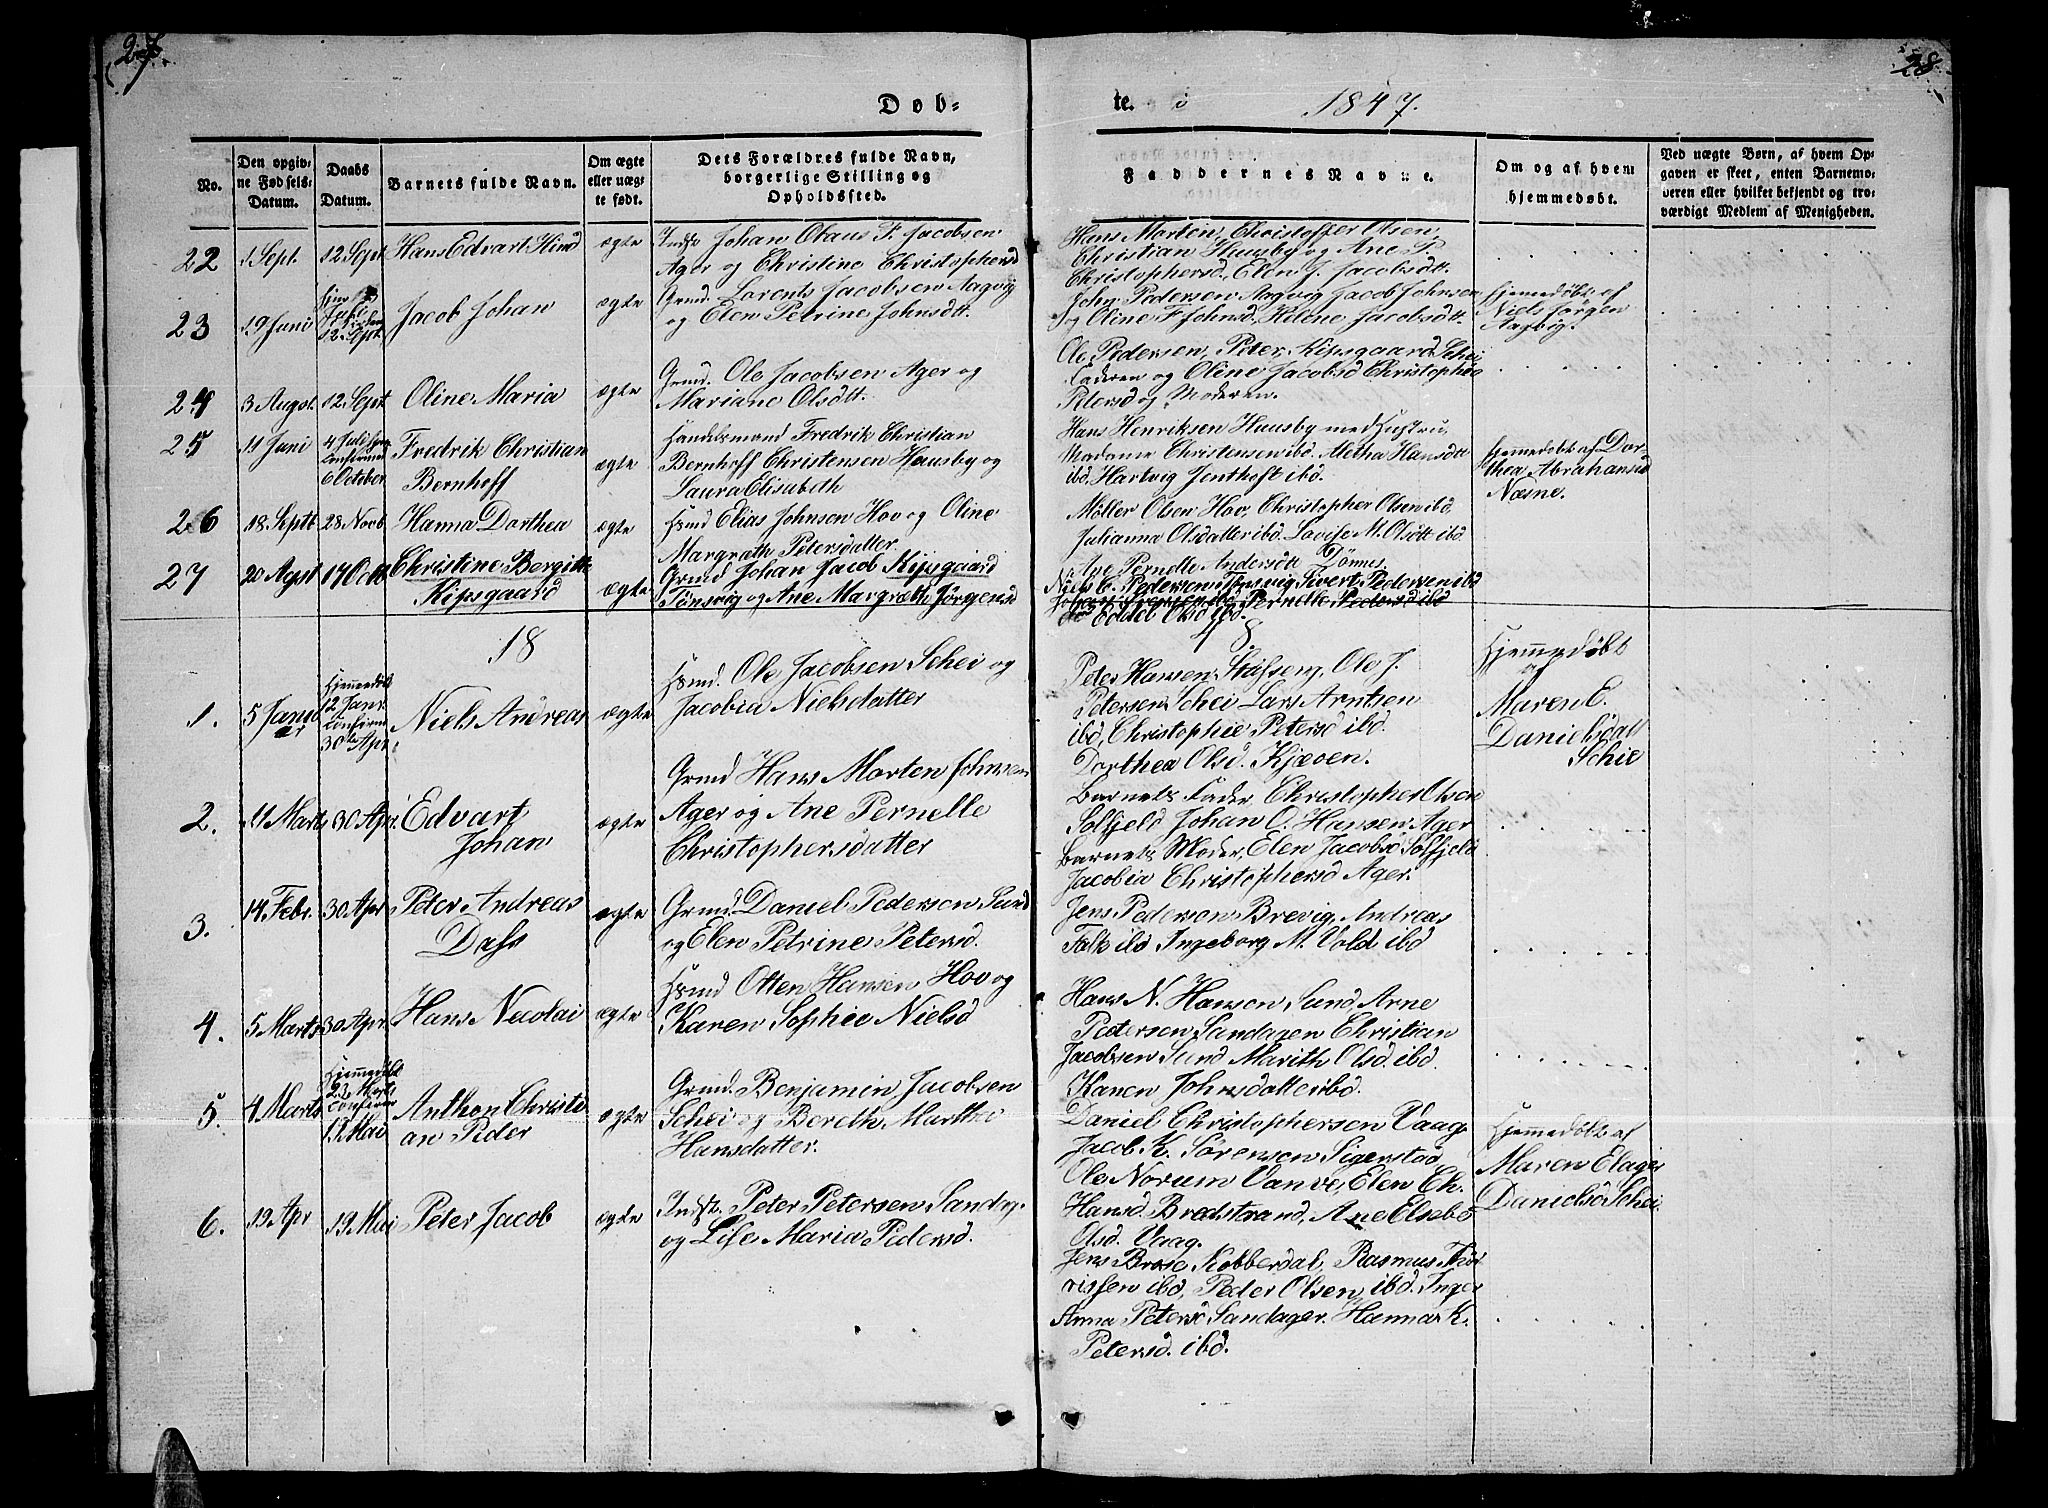 27.
28.
Døb=
te. 1847.
No.
Den opgiv=
ne Fødsels=
Datum.
Daabs
Datum.
Barnets fulde Navn.
Om ægte
eller uæg=
te født.
Dets Forældres fulde Navn,
borgerlige Stilling og
Opholdssted.
Faddernes Navne.
Om og af hvem
hjemmedøbt.
Ved uægte Børn, af hvem Op=
gaven er skeet, enten Barnemo=
deren eller hvilket bekjendt og tro=
værdigt Medlem af Menigheden.
22
1 Sept.
12 Sept
Hans Edvart Hind
ægte
Indst Johan Olaus F. Jacobsen
Ager og Christine Christophersd
Hans Morten, Christoffer Olsen,
Christian Huusby og Ane P
Christophersd, Elen J. Jacobsdtt.
23
19 Juni
12 Sept
Jacob Johan
ægte
Grmd. Lorents Jacobsen Aagvig
og Elen Petrine Johnsdtt.
John Pedersen Aagvig Jacob Johnsen
og Oline F. Johnsd, Helene Jacobsdtt.
Hjemmedøbt af
Niels Jørgen
Aagvig.
24
3 Augst.
12 Sept
Oline Maria
ægte
Grmd. Ole Jacobsen Ager og
Mariane Olsdtt.
Ole Pedersen, Peter Kipsgaard Schei
Faderen og Oline Jacobsd Christophea
Petersd og Moderen.
25
11 Juni
4 Juli hjm
Confirmed
6 October
Fredrik Christian
Bernhoff
ægte
Handelsmand Fredrik Christian
Bernhoff Christensen Huusby og
Laura Elisabeth
Hans Henriksen Huusby med Hustru,
Madame Christensen ibd. Metha Hansdtt
ibd. Hartvig Jentoft ibd.
Hjemmedøbt af Dor=
thea Abrahamsd
Næsne.
26
18 Septb
28 Novb
Hanna Dorthea
ægte
Hsmd Elias Johnsen Hov og Oline
Margrath Petersdatter.
Møller Olsen Hov, Christopher Olsen ibd,
Julianna Olsdatter ibd. Lovise M. Olsdtt ibd
Ane Pernelle Andersdtt Dönnes
27
20 Agst
17 Octb
Christine Bergitte
Kipsgaard
ægte
Grmd Johan Jacob Kipsgaard
Tönsvig og Ane Margreth Jörgensd
Niels C. Pedersen Tönsvig, Sivert Pedersen ibd
Pernelle Pedersd ibd
Olsd ibd.
18
48
1.
5 Janu
ar
Hjemmedöbt
12 Janr.
Confirm
30te Apr.
Niels Andreas
ægte
Hsmd. Ole Jacobsen Schei og
Jacobia Nielsdatter
Peter Hansen Stifseng, Ole J.
Petersen Schei Lars Arntsen
ibd, Christophie Petersd ibd.
Dorthea Olsd. Kjæven.
Hjemmedöbt
af
Maren E.
Danielsdatt
Schie
2.
11 Marts
30 Apr.
Edvart
Johan
ægte
Grmd Hans Morten Johnsen
Ager og Ane Pernelle
Christophersdatter
Barnets Fader, Christopher Olsen
Solfjeld Johan O. Hansen Ager
Barnets Moder, Elen Jacobsd Solfjeld
Jacobia Christophersd Ager.
3.
14 Febr.
30 Apr
Peter Andreas
Dass
ægte
Grmd. Daniel Pedersen Sund
og Elen Petrine Petersd.
Jens Pedersen Brevig, Andreas
Falk ibd Ingeborg M. Vold ibd
4.
5 Marts
30 Apr.
Hans Nicolai
ægte
Hsmd Otten Hansen Hov og
Karen Sophie Nielsd
Hans N. Hansen Sund Arne
Pedersen Sandagen Christian
Jacobsen Sund Marith Olsd. ibd.
Karen Johnsdatter ibd.
5.
4 Marts
Hjemmedöbt
23 Marts
Confirm
19 Mai
Anthon Christi
an Peder
ægte
Grmd. Benjamin Jacobsen
Schei og Bereth Marthe
Hansdatter.
Daniel Christophersen Vaag.
Jacob K. Sørensen Sigerstad
Ole Norum Vanve, Elen Ch.
Hansd. Bredstrand, Ane Elsebe
Olsd. Vaag.
Hjemmedöbt af
Maren Elager
Danielsd Schei
6.
19 Apr
19 Mai
Peter Jacob
ægte
Indst. Peter Petersen Sandag.
og Lise Maria Pedersd.
Jens Brose Kobberdal, Rasmus Thor
rissen ibd, Peder Olsen ibd. Inger
Anna Petersd Sandager. Hanna K.
Petersd. ibd.